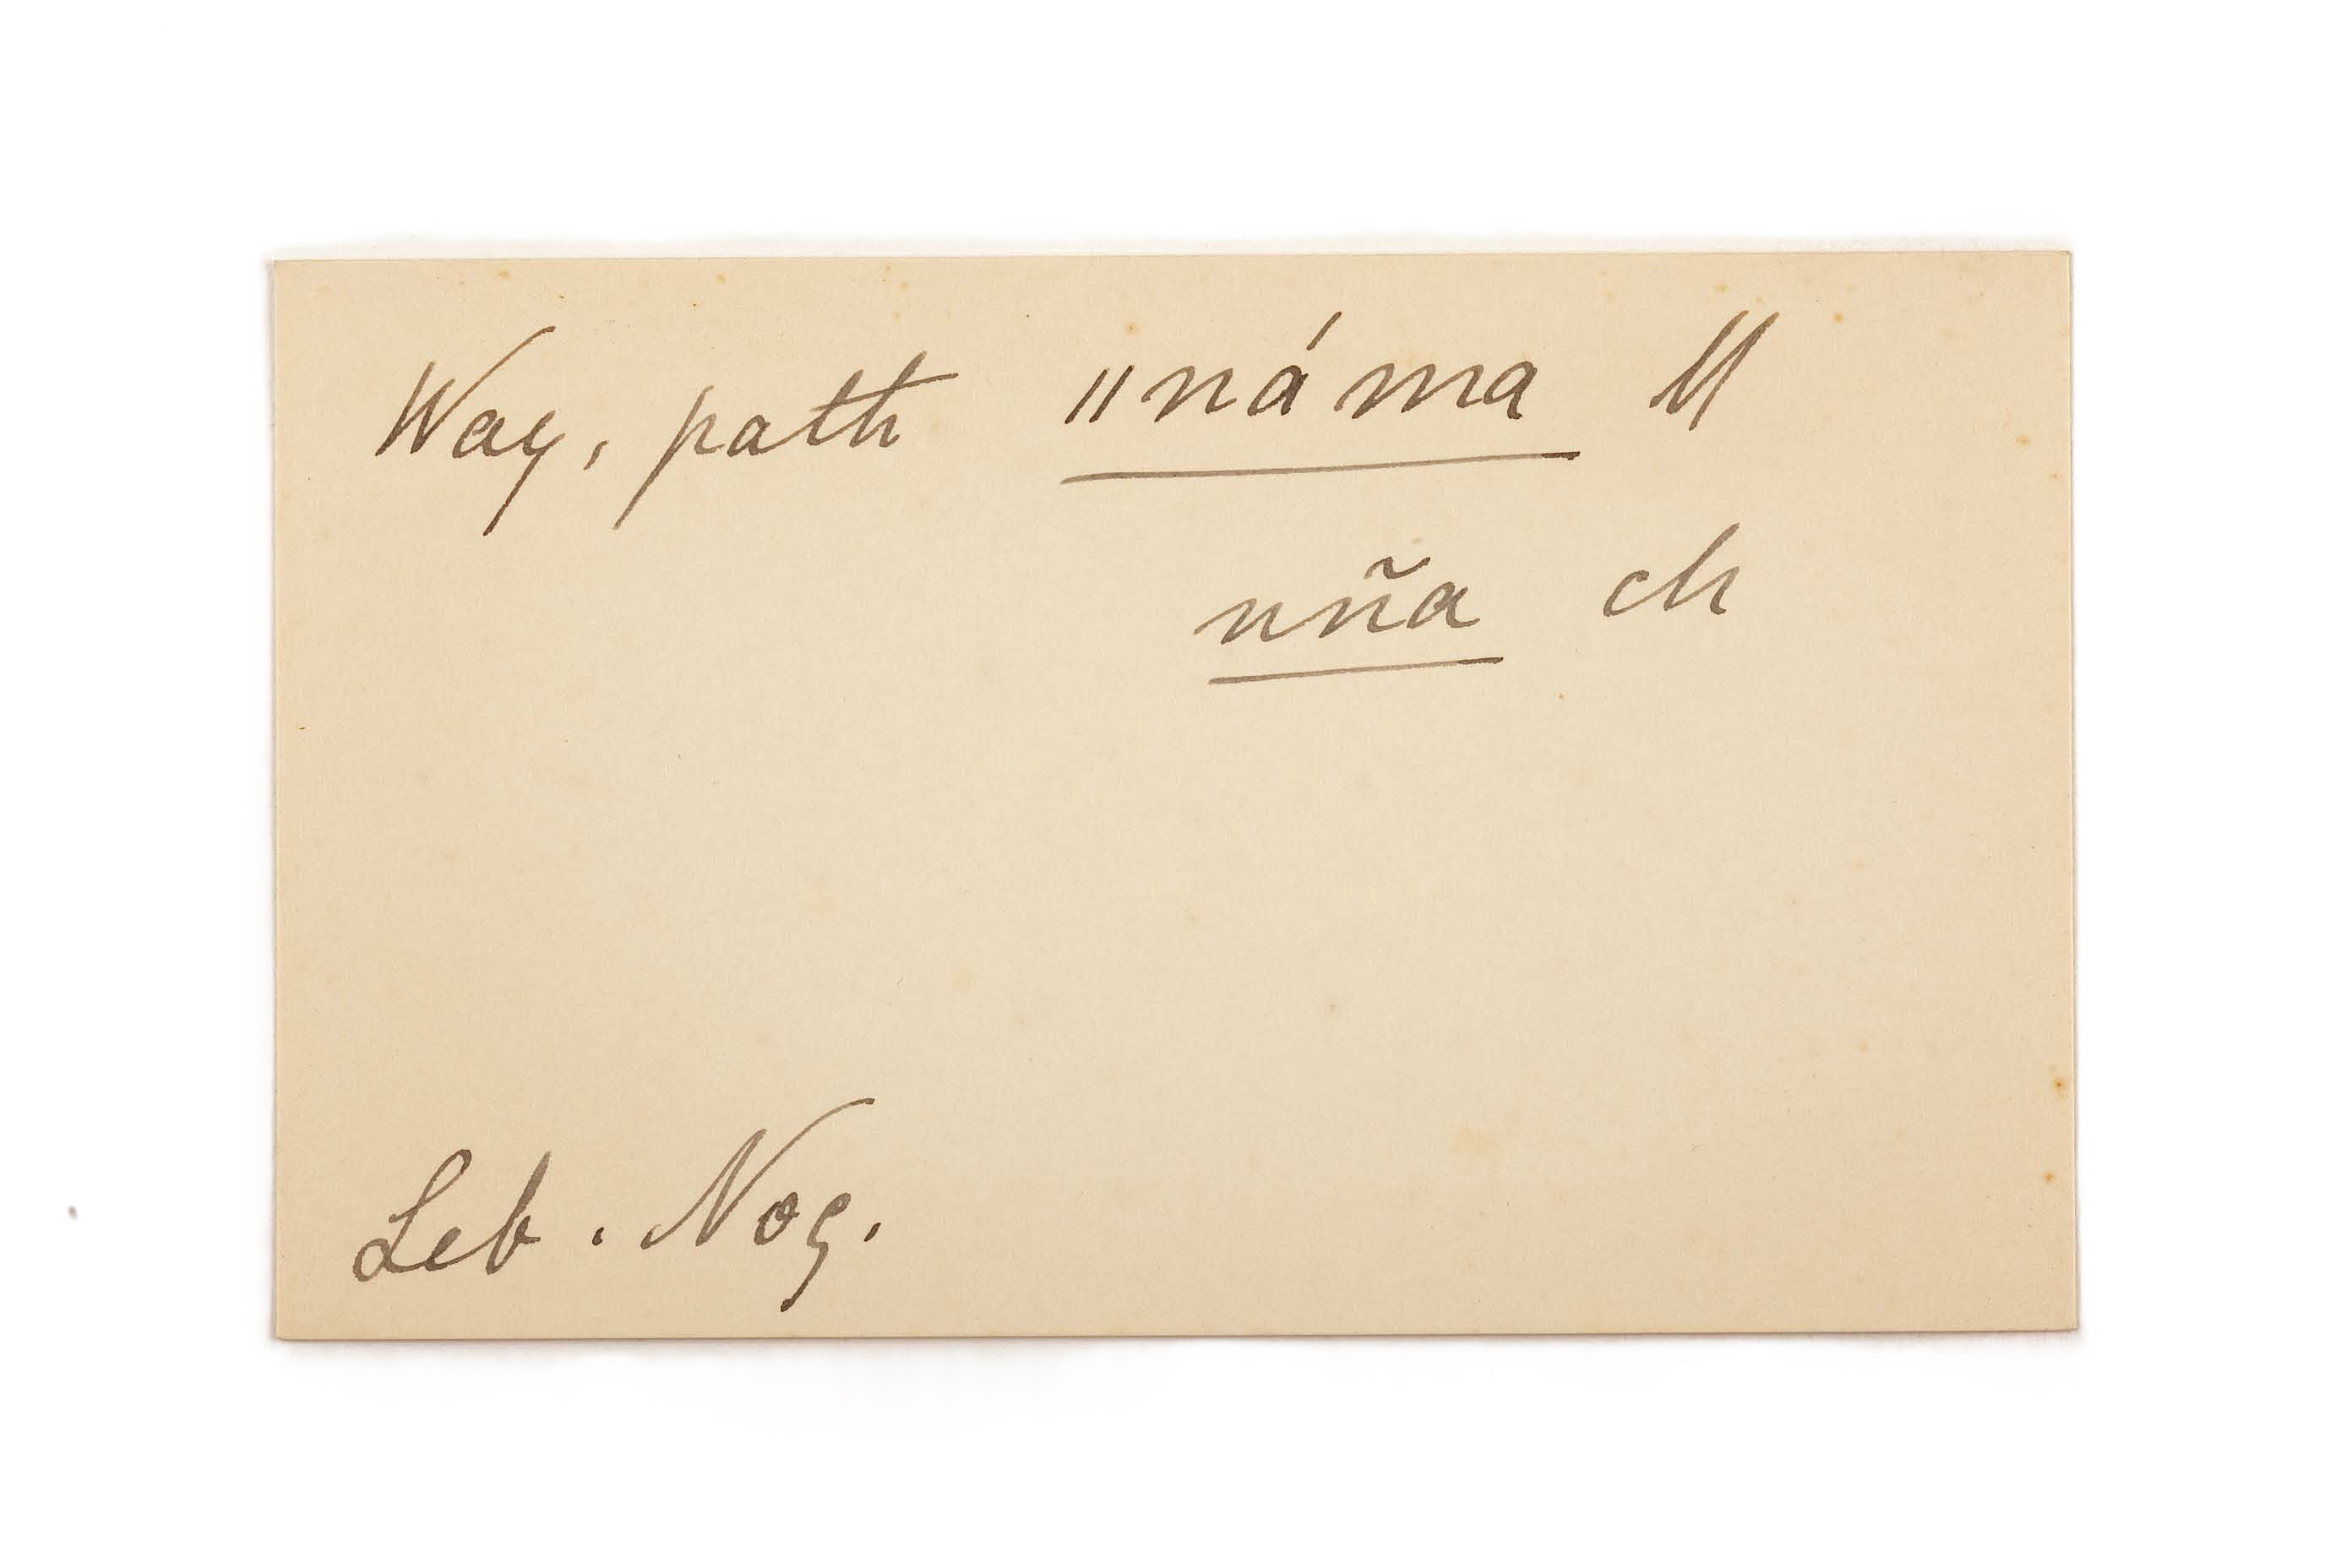 Way, path ॥náma M
uña ch
Leb. Nog.